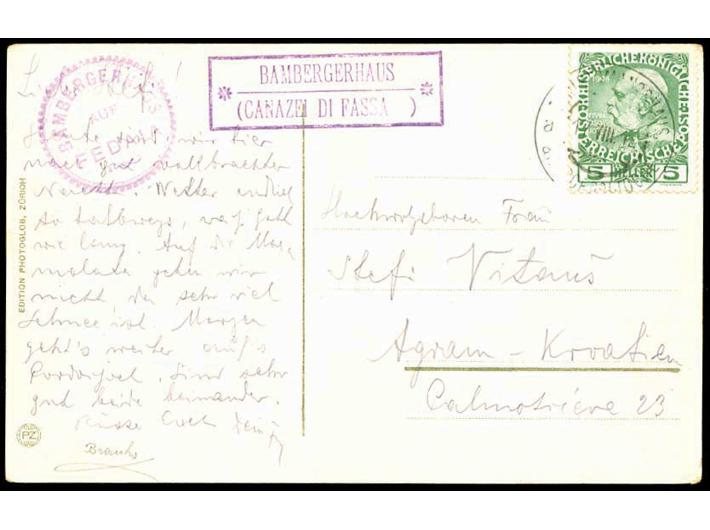 BAMBERGERHAUS
AUF
FEDAJA
BAMBERGERHAUS
(CANAZEI DI FASSA )
KAISERLICHE KÖNIGLICHE ÖSTERREICHISCHE
1908
5 HELLER 5
EDITION PHOTOGLOB, ZÜRICH
wir hier
nach gut vollbrachter
Wetter endlich
so halbwegs,
wie lang. Auf die Mar-
molata gehen wir
nicht da sehr viel
Schnee ist. Morgen
geht's weiter auf's
Pordoijoch. Sind sehr
gut beide beinander.
Küsse Euch Dein
Branko
PZ
Hochwohlgeboren Frau
Stefi Vitauš
Agram - Kroatien
23